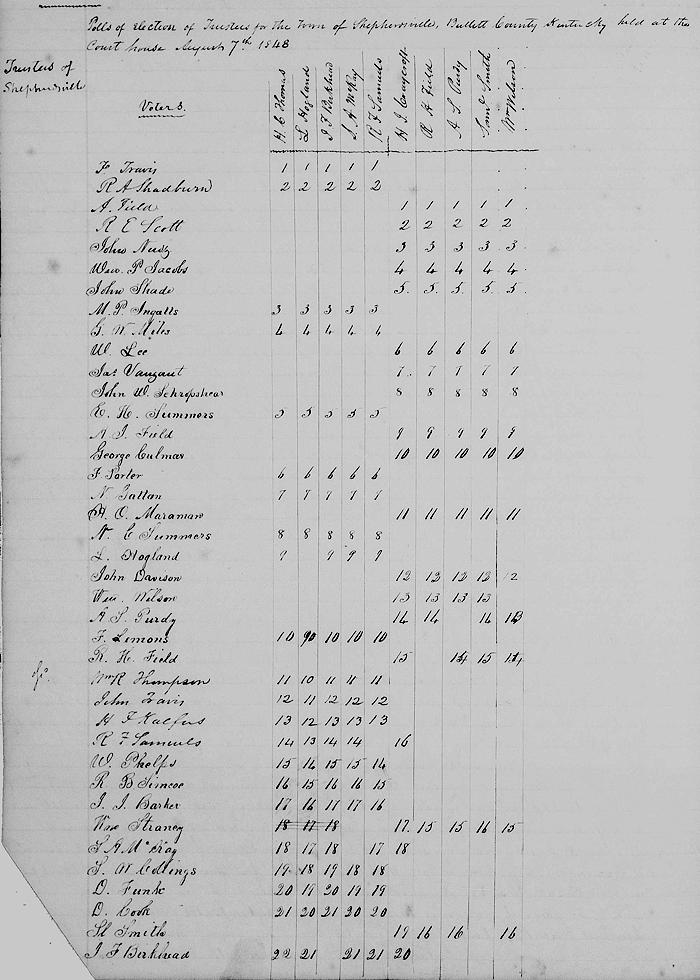 Polls of election of Trustees for the Town of Shepherdsville, Bullitt County Kentucky held at the
Court house August 7th 1848
Trustees of
Shepherdsville
Voters.
H C Thomas
L Hogland
I F Birkhead
S A McKay
R F Samuels
H I
R H Field
A S Purdy
Saml Smith
Wm Wilson
F Travis 1 1 1 1 1
R A Shadburn 2 2 2 2 2
A. Field 1 1 1 1 1
R E Scott 2 2 2 2 2
John 3 3 3 3 3
Wm. P Jacobs 4 4 4 4 4
John Shade 5 5 5 5 5
M. P. Ingalls 3 3 3 3 3
G. W. Miles 4 4 4 4 4
W. Lee 6 6 6 6 6
Jas Vanzant 7 7 7 7 7
John W. 8 8 8 8 8
E. H. Summers 5 5 5 5 5
A I. Field 9 9 9 9 9
George Culmar 10 10 10 10 10
F. Porter 6 6 6 6 6
N. 7 7 7 7 7
H. O. Maraman 11 11 11 11 11
N. C Summers 8 8 8 8 8
L. Hogland 9 9 9 9
John Davison 12 12 12 12 12
Wm. Wilson 13 13 13 13
A S. Purdy 14 14 14 13
F. Lemons 10 10 10 10
R. H. Field 15 14 15 14
Wm R Thompson 11 10 11 11 11
John Travis 12 11 12 12 12
H F Kalfus 13 12 13 13 13
R F Samuels 14 13 14 14 16
W. Phelps 15 14 15 15 14
R B Simcoe 16 15 16 16 15
I. I. Barker 17 16 17 17 16
Wm Straney 18 17 18 17 15 15 16 15
S A McKay 18 17 18 17 18
S. W Collings 19 18 19 18 18
D. Funk 20 19 20 19 19
D. Cook 21 20 21 20 20
Sl Smith 19 16 16 16
I F Birkhead 22 21 21 21 20